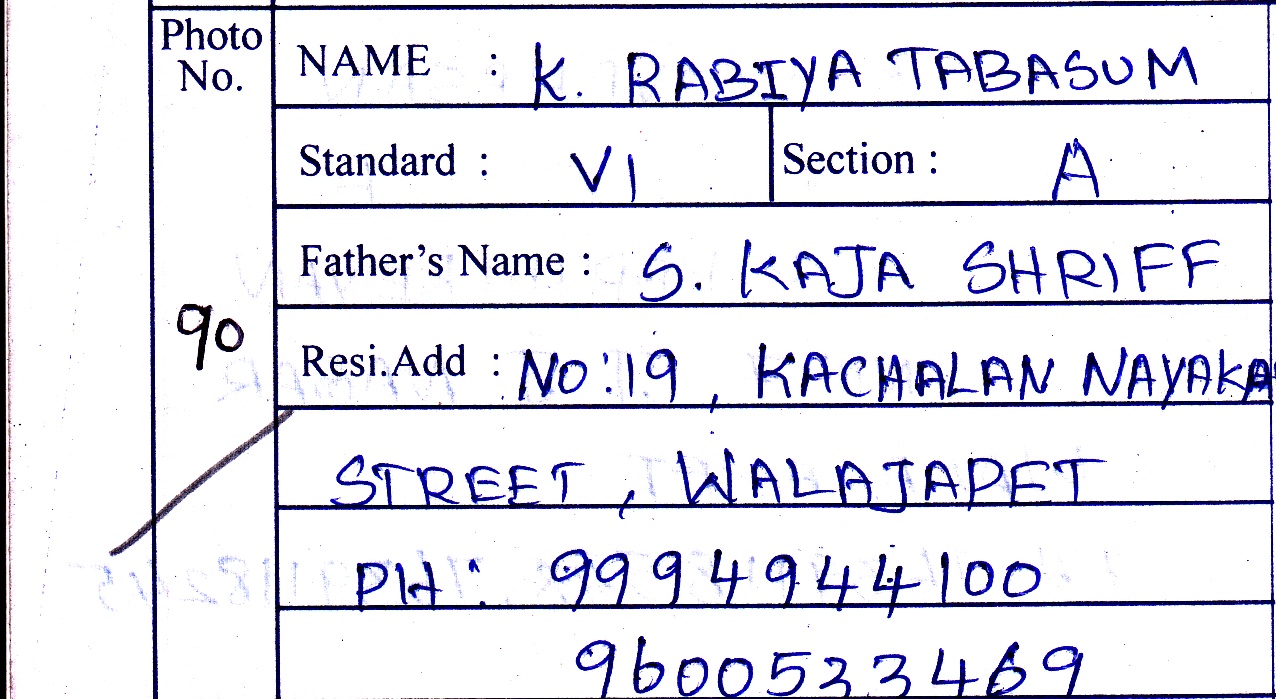 Photo No.
NAME : K. RABIYA TABASUM
Standard : VI Section : A
Father's Name : S. KAJA SHRIFF
90
Resi.Add : NO:19, KACHALAN NAYAKA
STREET, WALAJAPET
PH: 9994944100
9600533469